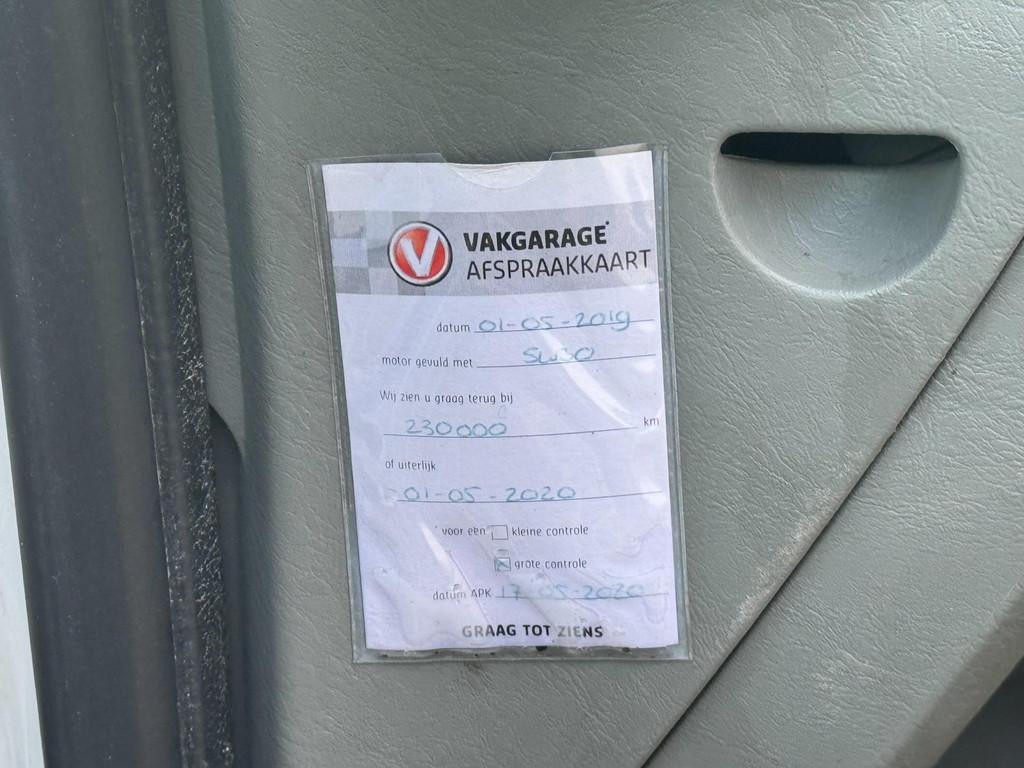 V VAKGARAGE
AFSPRAAKKAART
datum 01-05-2019
motor gevuld met
Wij zien u graag terug bij
230000 km
of uiterlijk
01-05-2020
voor een kleine controle
grote controle
datum APK 17-05-2020
GRAAG TOT ZIENS